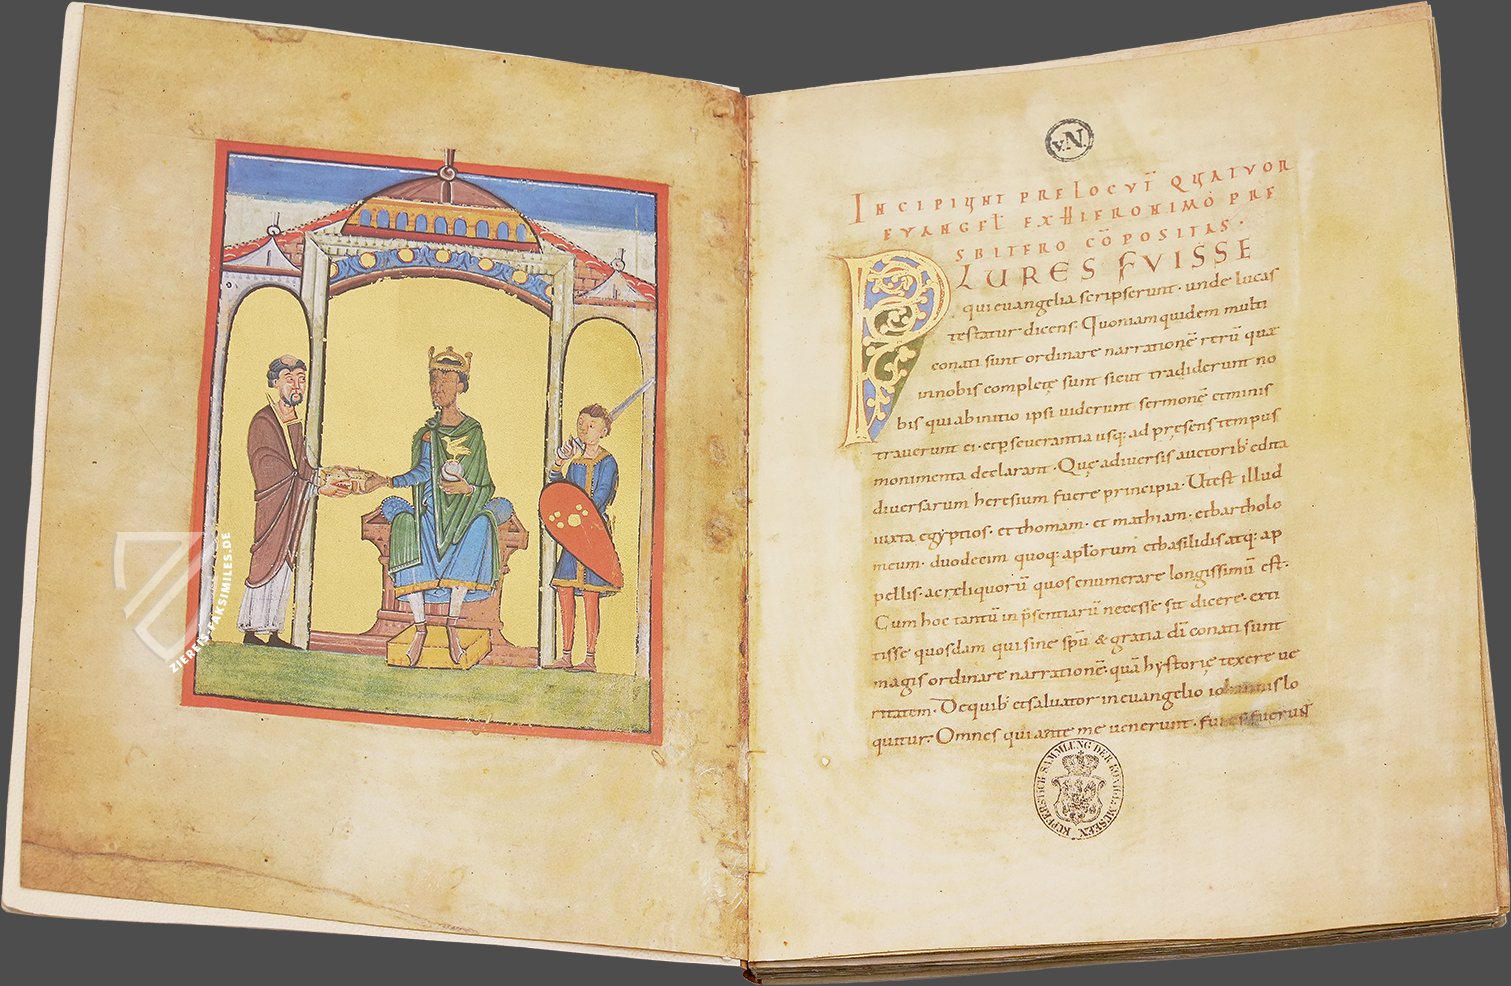 ZIEREIS-FAKSIMILES.DE
v.N.
INCIPIUNT PRELOCUT̄ QUATUOR
EUANGEL̄ EX HIERONIMO PRE
SBITERO CŌPOSITAS.
PLURES FVISSE
qui euangelia scripserunt. unde lucas
testatur dicens. Quoniam quidem multi
conati sunt ordinare narrationē rerū quæ
innobis complete sunt sicut tradiderunt no
bis qui abinitio ipsi uiderunt sermonē etminis
trauerunt ei. etp̱seuerantia usq: ad pręsens tempus
monimenta declarant. Quę adiuersis auctorib; edita
diuersarum heresium fuere principia. Utest illud
iuxta egyptios. et thomam. et mathiam. etbartholo
meum. duodecim quoq: apl̄orum etbasilidis atq: ap
pellis. ac reliquorū quos enumerare longissimū est.
Cum hoc tantū in p̄sentiarū necesse sit dicere. exti
tisse quosdam qui sine sp̄u & gratia dī conati sunt
magis ordinare narrationē. quā hystorię texere ue
ritatem. Dequib; etsaluator in euangelio iohannis lo
quitur. Omnes qui ante me uenerunt. fures fuerunt
KUPFERSTICH SAMMLUNG DER KÖNIGL. MUSEEN.